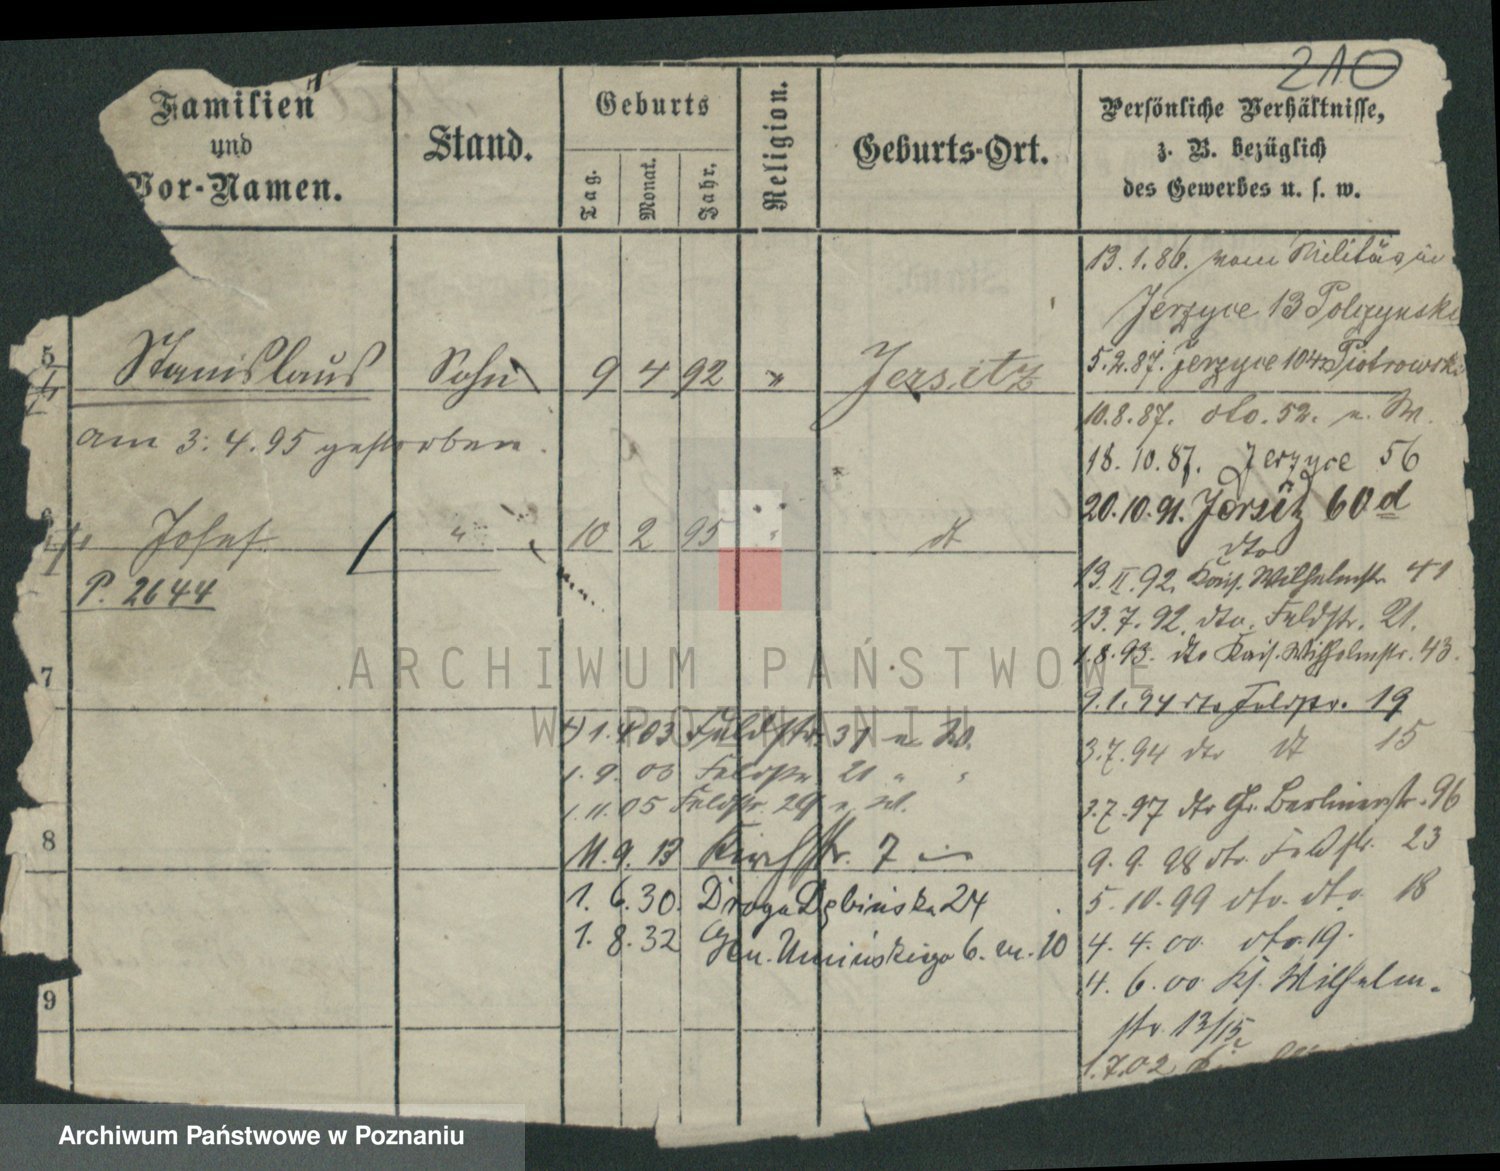 210
Familien
und
Vor-Namen.
Stand.
Geburts
Tag.
Monat.
Jahr.
Religion.
Geburts-Ort.
Persönliche Verhältnisse,
z. B. bezüglich
des Gewerbes u. s. w.
5
Stanislaus Sohn 9 4 92 " Jersitz
am 3. 4. 95 gestorben.
6
Josef " 10 2 95 " dt
P. 2644
7
8
9
1. 4. 03 Feldstr. 31 u. W.
1. 9. 03 Feldstr. 21 " "
1. 11. 05 Feldstr. 29 u. W.
11. 9. 13 Kirchstr. 7
1. 6. 30. Droga Dębińska 24
1. 8. 32 Gen. Umińskiego 6. m. 10
13. 1. 86. vom Militär in
Jerzyce 13
5. 2. 87. Jerzyce 104 Piotrowski
10. 8. 87. dto. 52. u. W.
18. 10. 87. Jerzyce 56
20. 10. 91. Jersitz 60d
dto
13. II. 92. Kais. Wilhelmstr. 41
13. 7. 92. dto. Feldstr. 21.
1. 8. 93. dto Kais. Wilhelmstr. 43.
9. 1. 94 dto Feldstr. 19
3. 7. 94 dto dt 15
3. 7. 97 dto Gr. Berlinerstr. 96
9. 9. 98 dto. Feldstr. 23
5. 10. 99 dto. dto. 18
4. 4. 00 dto. 19.
4. 6. 00 Ks. Wilhelm-
str. 13/15
1. 7. 02
ARCHIWUM PAŃSTWOWE
W POZNANIU
Archiwum Państwowe w Poznaniu